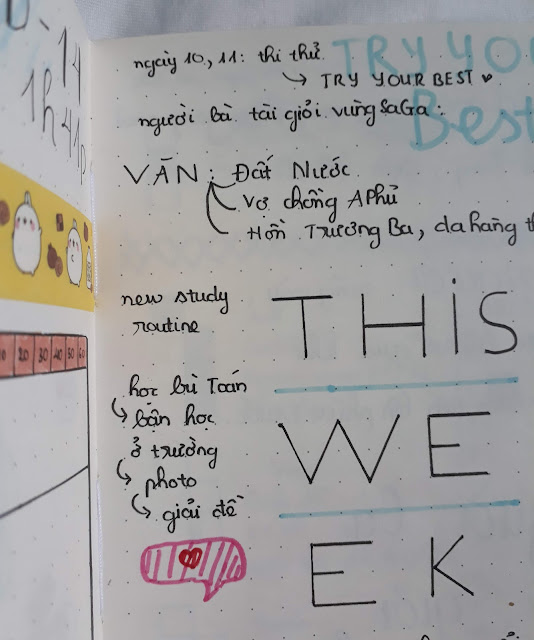 14
1h 41p
10 20 30 40 50 60
TRY YOU
Best
ngày 10, 11: thi thử
TRY YOUR BEST
người bà tài giỏi vùng SaGa:
VĂN: Đất Nước
Vợ chồng A Phủ
Hồn Trương Ba, da hàng
new study
routine
THIS
WE
EK
học bù Toán
bận học
ở trường
photo
giải đề